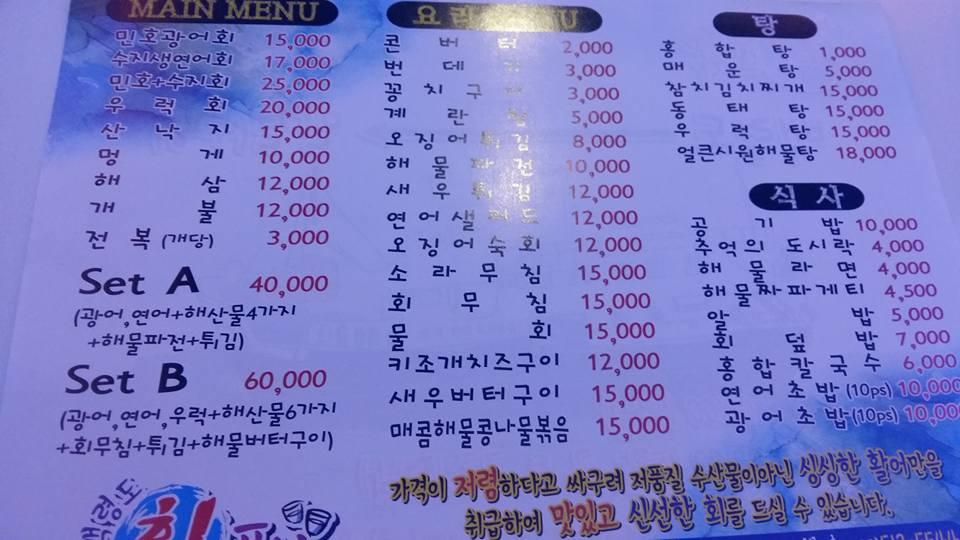 MAIN MENU
민호광어회 15,000
수지생연어회 17,000
민호+수지회 25,000
우럭회 20,000
산낙지 15,000
멍게 10,000
해삼 12,000
개불 12,000
전복 (개당) 3,000
Set A 40,000
(광어,연어+해산물4가지
+해물파전+튀김)
Set B 60,000
(광어,연어,우럭+해산물6가지
+회무침+튀김+해물버터구이)
요리 MENU
콘버터 2,000
번데기 3,000
꽁치구이 3,000
계란탕 5,000
오징어튀김 8,000
해물파전 10,000
새우튀김 12,000
연어샐러드 12,000
오징어숙회 12,000
소라무침 15,000
회무침 15,000
물회 15,000
키조개치즈구이 12,000
새우버터구이 15,000
매콤해물콩나물볶음 15,000
탕
홍합탕 1,000
매운탕 5,000
참치김치찌개 15,000
동태탕 15,000
우럭탕 15,000
얼큰시원해물탕 18,000
식사
공기밥 10,000
추억의 도시락 4,000
해물라면 4,000
해물짜파게티 4,500
알밥 5,000
회덮밥 7,000
홍합칼국수 6,000
연어초밥 (10ps) 10,000
광어초밥 (10ps) 10,000
가격이 저렴하다고 싸구려 저품질 수산물이아닌 싱싱한 활어만을
취급하여 맛있고 신선한 회를 드실 수 있습니다.
회